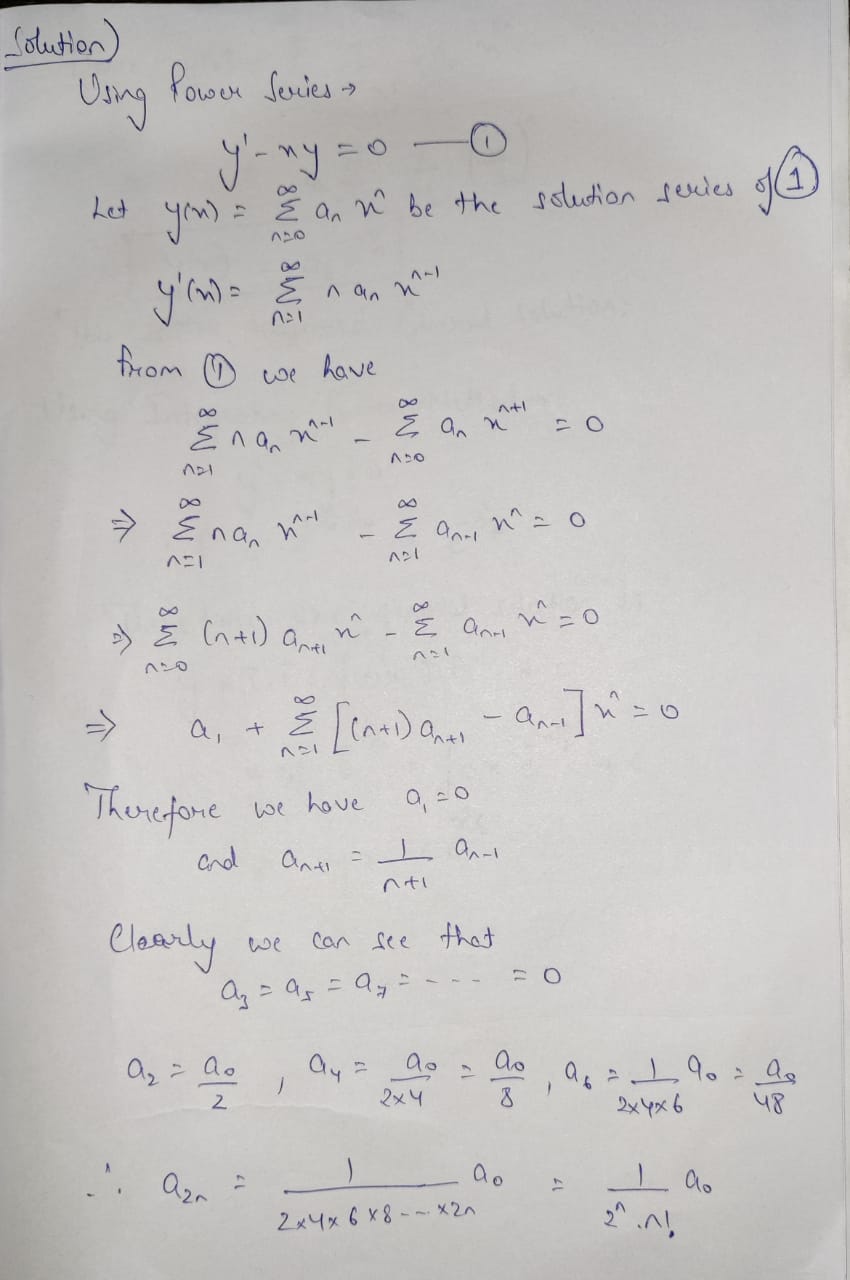 Solution)
Using Power Series →
y' - xy = 0 — ①
Let y(x) = ∞ Σ n=0 aₙ xⁿ be the solution series of ①
y'(x) = ∞ Σ n=1 n aₙ xⁿ⁻¹
from ① we have
∞ Σ n=1 n aₙ xⁿ⁻¹ - ∞ Σ n=0 aₙ xⁿ⁺¹ = 0
⇒ ∞ Σ n=1 n aₙ xⁿ⁻¹ - ∞ Σ n=1 aₙ₋₁ xⁿ = 0
⇒ ∞ Σ n=0 (n+1) aₙ₊₁ xⁿ - ∞ Σ n=1 aₙ₋₁ xⁿ = 0
⇒ a₁ + ∞ Σ n=1 [(n+1) aₙ₊₁ - aₙ₋₁] xⁿ = 0
Therefore we have a₁ = 0
and aₙ₊₁ = 1/(n+1) aₙ₋₁
Clearly we can see that
a₃ = a₅ = a₇ = - - - - = 0
a₂ = a₀/2 , a₄ = a₀/(2×4) = a₀/8 , a₆ = 1/(2×4×6) a₀ = a₀/48
∴ a₂ₙ = 1/(2×4×6×8---×2n) a₀ = 1/(2ⁿ.n!) a₀